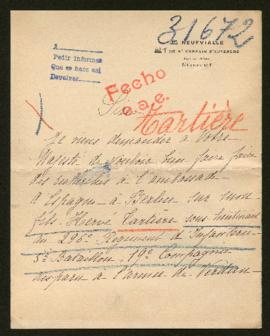 31672
DE NEUFVILLE
A
Pedir informes
Que se hace así
Devolver
Fecho
e.a.e.
Sire
Tartière
Je viens demander à Votre
Majesté de vouloir bien faire faire
des recherches à l'ambassade
d'Espagne à Berlin sur mon
fils Hervé Tartière sous lieutenant
au 296e Régiment d'Infanterie
5e Bataillon 19e Compagnie
disparu à l'armée de Verdun